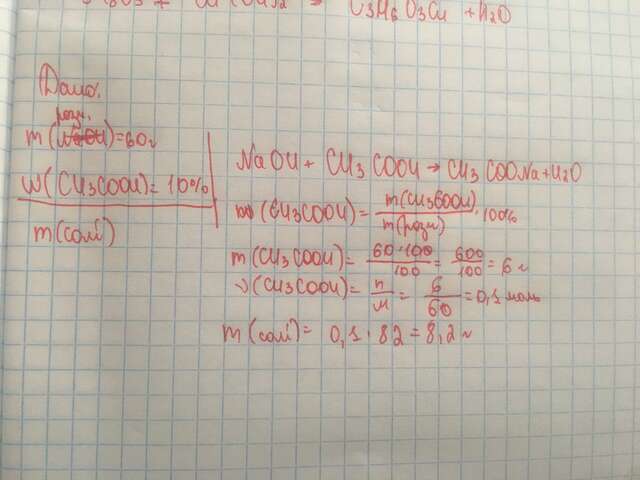 C3H6O3Cu + H2O
Дано:
розч.
m(NaOH)=60г
W(CH3COOH)=10%
m(солі)
NaOH + CH3COOH → CH3COONa + H2O
W(CH3COOH) = m(CH3COOH) / m(розч) · 100%
m(CH3COOH) = 60·100 / 100 = 600 / 100 = 6 г
ν(CH3COOH) = n / M = 6 / 60 = 0,1 моль
m(солі) = 0,1 · 82 = 8,2 г